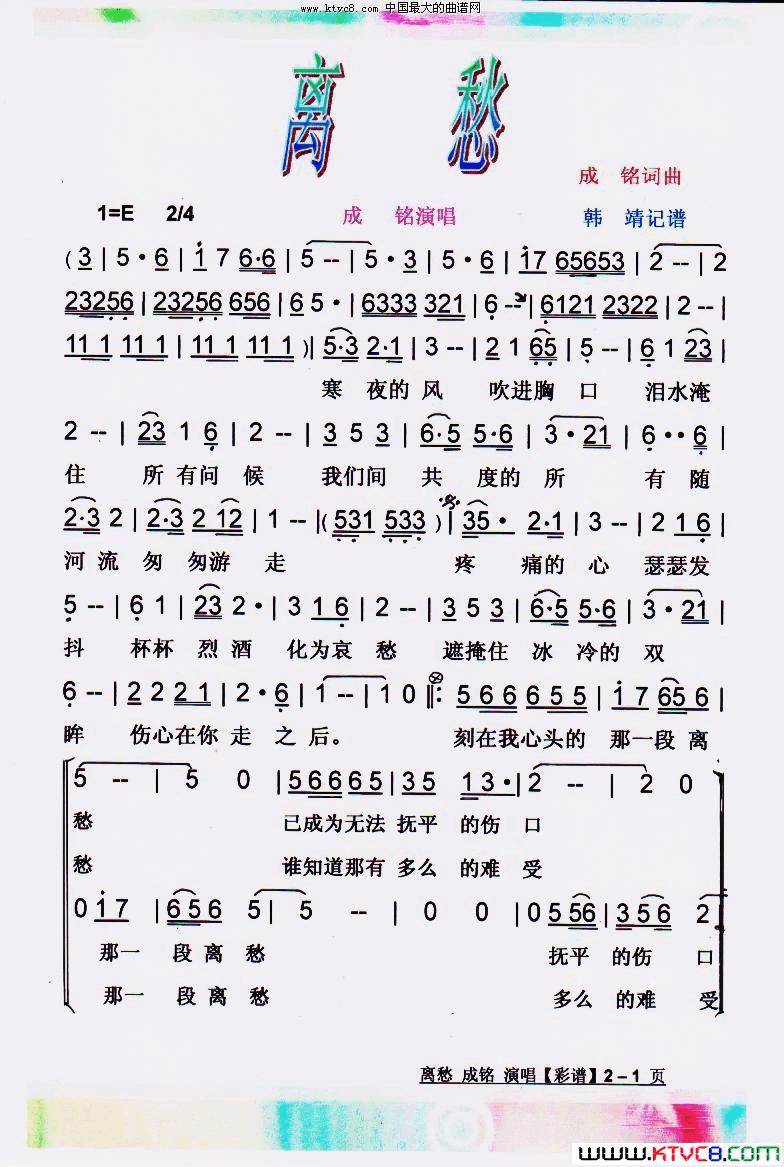 www.ktvc8.com 中国最大的曲谱网
离 愁
成 铭词曲
1=E 2/4 成 铭演唱 韩 靖记谱
( 3 | 5 · 6 | 1 7 6·6 | 5 -- | 5 · 3 | 5 · 6 | 17 65653 | 2 -- | 2
23256 | 23256 656 | 6 5 · | 6333 321 | 6 -- | 6121 2322 | 2 -- |
11 1 11 1 | 11 1 11 1 )| 5·3 2·1 | 3 -- | 2 1 65 | 5 -- | 6 1 23 |
寒 夜的 风 吹进胸 口 泪水淹
2 -- | 23 1 6 | 2 -- | 3 5 3 | 6·5 5·6 | 3 · 21 | 6 ·· 6 |
住 所有问 候 我们间 共 度的 所 有 随
2·3 2 | 2·3 2 12 | 1 -- |( 531 533 )| 35 · 2·1 | 3 -- | 2 1 6 |
河 流 匆 匆游 走 疼 痛的 心 瑟瑟发
5 -- | 6 1 | 23 2 · | 3 1 6 | 2 -- | 3 5 3 | 6·5 5·6 | 3 · 21 |
抖 杯杯 烈 酒 化为哀 愁 遮掩住 冰 冷的 双
6 -- | 2 2 2 1 | 2 · 6 | 1 -- | 1 0 ‖: 5 6 6 6 5 5 | 1 7 65 6 |
眸 伤心在你 走 之 后。 刻在我心头的 那一段 离
5 -- | 5 0 | 5 6 6 6 5 | 3 5 1 3 · | 2 -- | 2 0
愁 已成为无法 抚平 的伤 口
愁 谁知道那有 多么 的难 受
0 1 7 | 6 5 6 5 | 5 -- | 0 0 | 0 5 56 | 3 5 6 2
那一 段 离 愁 抚平 的伤 口
那一 段 离 愁 多么 的难 受
离愁 成铭 演唱【彩谱】2－1 页
www.KTVC8.com